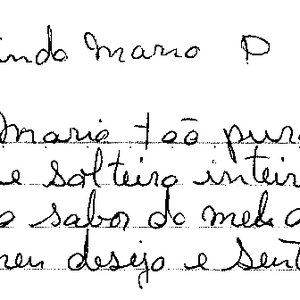 indo Mario P
Mario tão pur
e solteiro inteir
o sabor do mel d
meu desejo e sent